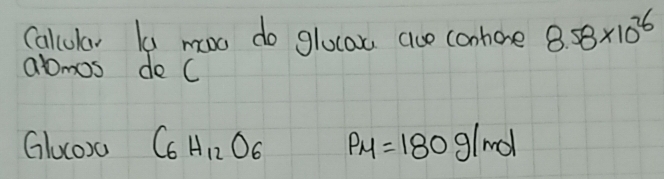 Calcular la masa de glucosa que contiene 8.58×10²⁶
atomos de C
Glucosa C₆ H₁₂ O₆ PM = 180 g/mol